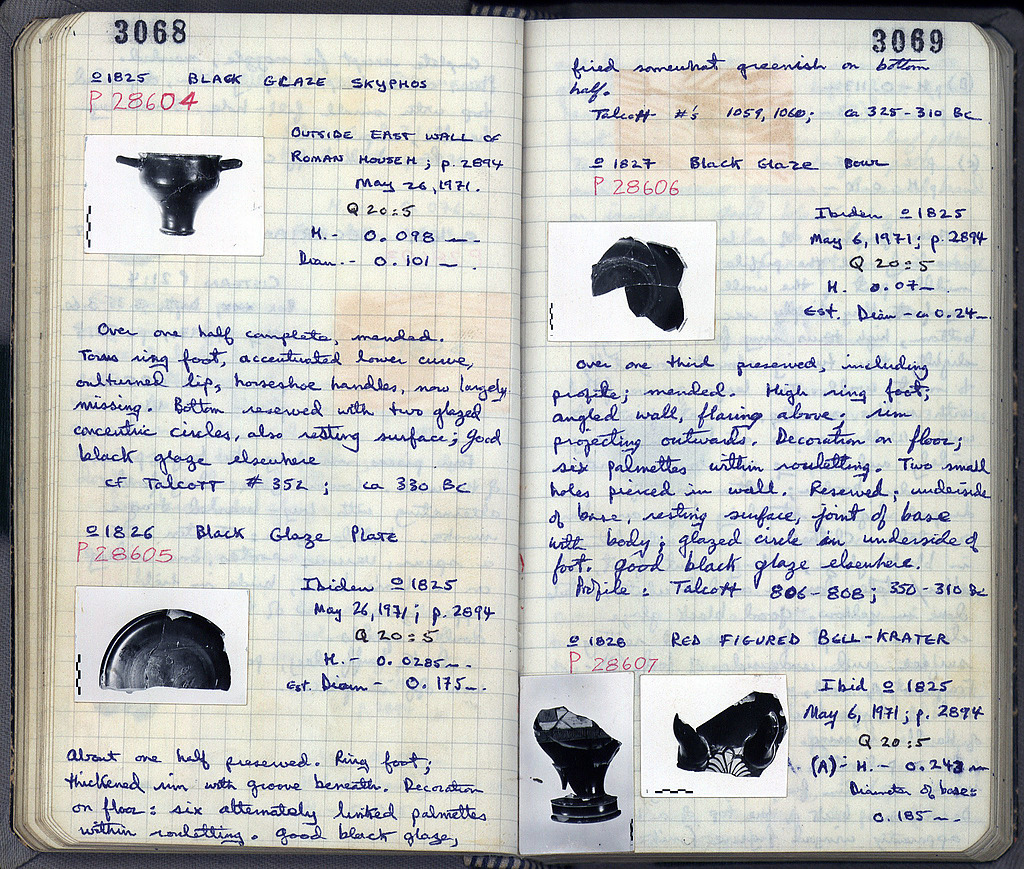 3068
o 1825 BLACK GLAZE SKYPHOS
P 28604
OUTSIDE EAST WALL OF
ROMAN HOUSE H ; p. 2894
May 26, 1971.
Q 20:5
H. - 0.098 m.
Diam. - 0.101 m.
Over one half complete, mended.
Torus ring foot, accentuated lower curve,
outturned lip, horseshoe handles, now largely
missing. Bottom reserved with two glazed
concentric circles, also resting surface; Good
black glaze elsewhere
cf Talcott # 352 ; ca 330 BC
o 1826 Black Glaze Plate
P 28605
Ibidem o 1825
May 26, 1971 ; p. 2894
Q 20:5
H. - 0.0285 m.
Est. Diam - 0.175 m.
About one half preserved. Ring foot;
thickened rim with groove beneath. Decoration
on floor: six alternately linked palmettes
within rouletting. Good black glaze,
3069
fried somewhat greenish on bottom
half.
Talcott #'s 1059, 1060; ca 325-310 BC
o 1827 Black Glaze Bowl
P 28606
Ibidem o 1825
May 6, 1971 ; p. 2894
Q 20:5
H. 0.07 m.
Est. Diam - ca 0.24 m.
Over one third preserved, including
profile; mended. High ring foot;
angled wall, flaring above; rim
projecting outwards. Decoration on floor;
six palmettes within rouletting. Two small
holes pierced in wall. Reserved; underside
of base, resting surface, joint of base
with body; glazed circle on underside of
foot. Good black glaze elsewhere.
Profile : Talcott 806-808 ; 350-310 BC
o 1828 RED FIGURED BELL-KRATER
P 28607
Ibid o 1825
May 6, 1971 ; p. 2894
Q 20:5
(A) - H. - 0.243 m
Diameter of base:
0.185 m.